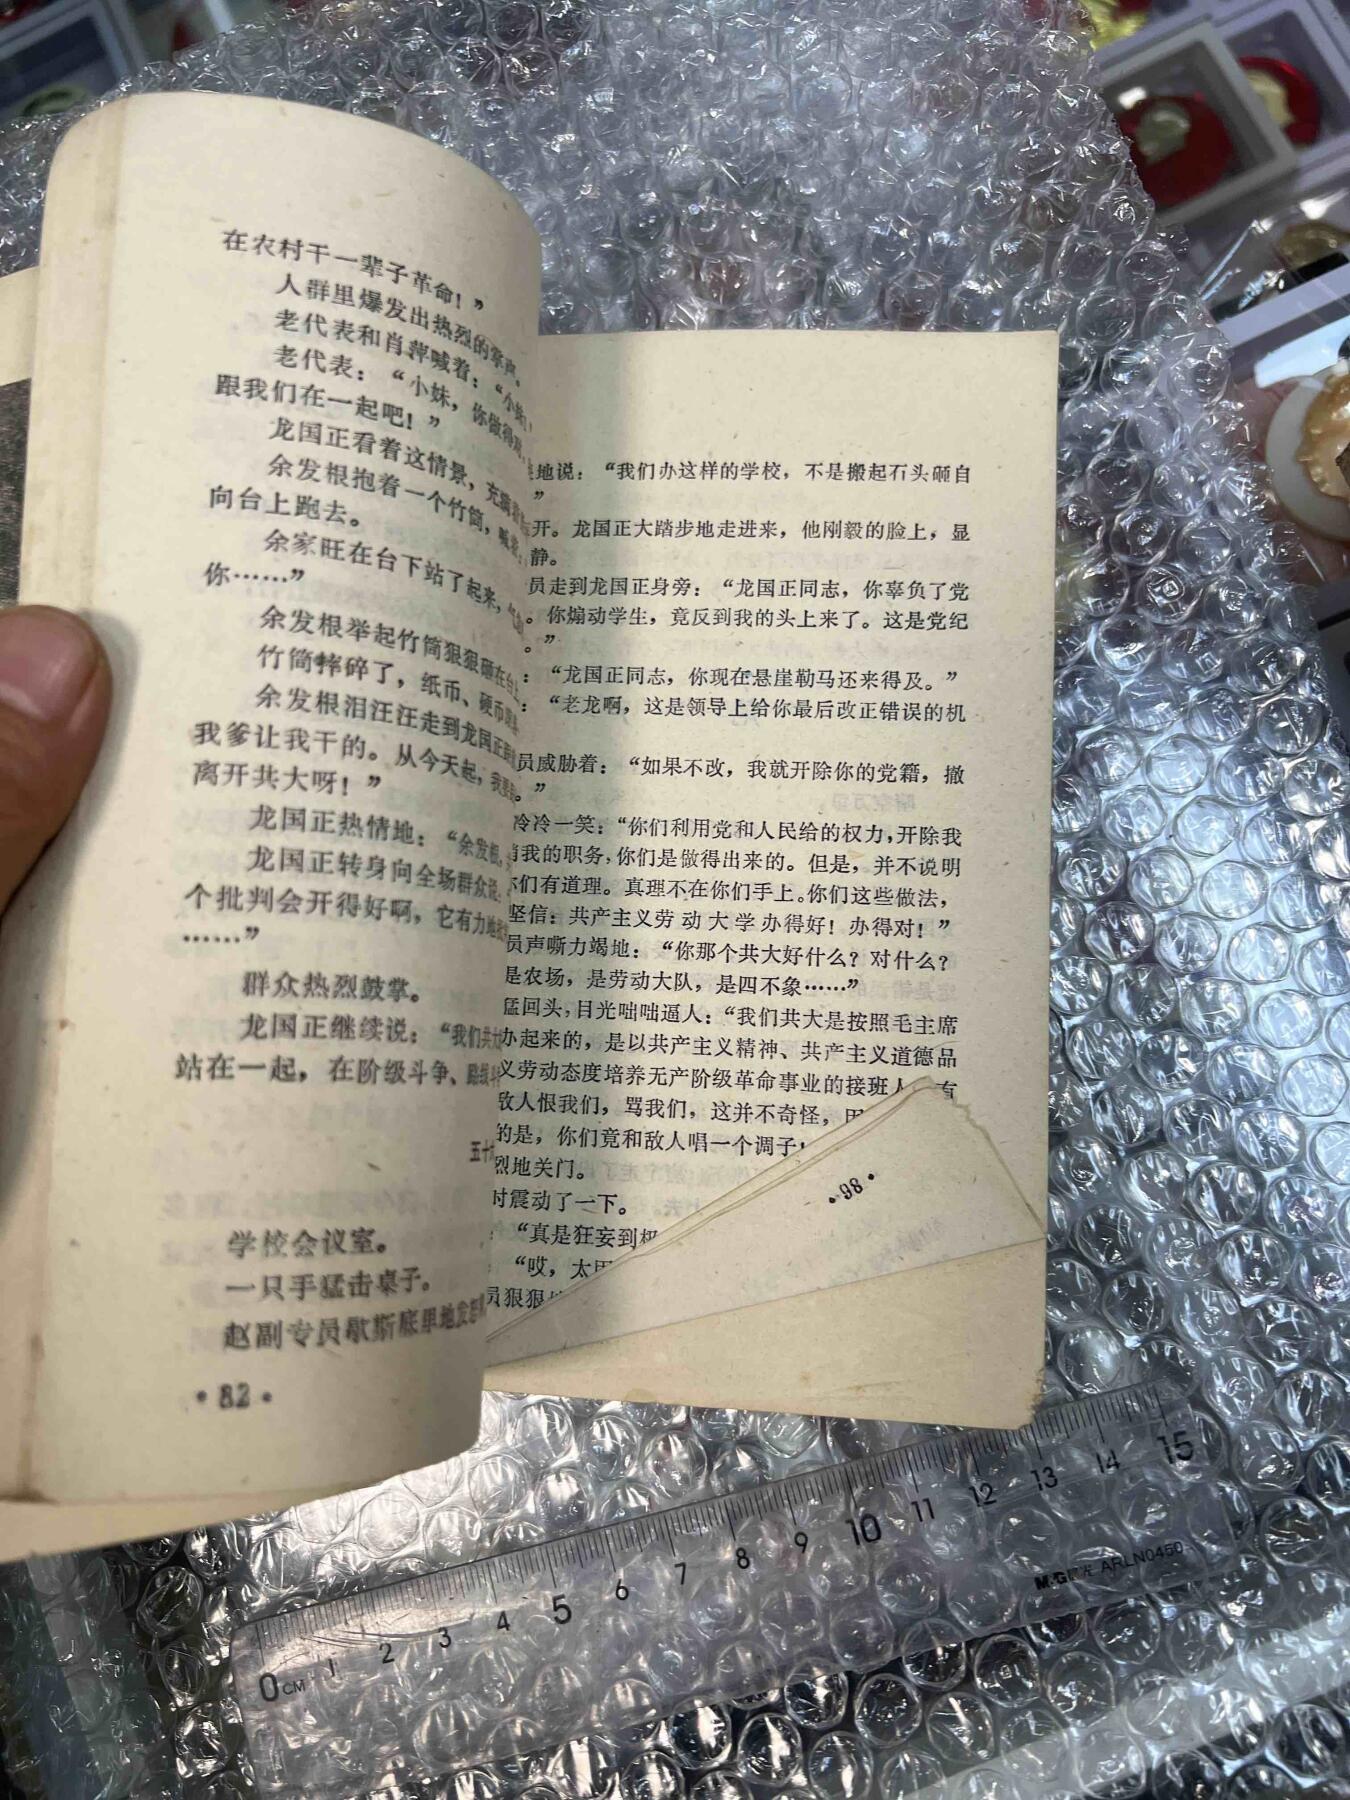 在农村干一辈子革命！”
人群里爆发出热烈的掌声。
老代表和肖萍喊着：“小妹！
老代表：“小妹，你做得对，
跟我们在一起吧！”
龙国正看着这情景，充满
余发根抱着一个竹筒，喊
向台上跑去。
余家旺在台下站了起来，
你……”
余发根举起竹筒狠狠砸在台上
竹筒摔碎了，纸币、硬币
余发根泪汪汪走到龙国正
我爹让我干的。从今天起，我要
离开共大呀！”
龙国正热情地：“余发根，
龙国正转身向全场群众说：
个批判会开得好啊，它有力地
……”
群众热烈鼓掌。
龙国正继续说：“我们共大
站在一起，在阶级斗争、路线斗
五十
学校会议室。
一只手猛击桌子。
赵副专员歇斯底里地发
·82·
地说：“我们办这样的学校，不是搬起石头砸自
”
开。龙国正大踏步地走进来，他刚毅的脸上，显
静。
员走到龙国正身旁：“龙国正同志，你辜负了党
。你煽动学生，竟反到我的头上来了。这是党纪
。”
：“龙国正同志，你现在悬崖勒马还来得及。”
：“老龙啊，这是领导上给你最后改正错误的机
员威胁着：“如果不改，我就开除你的党籍，撤
。”
冷冷一笑：“你们利用党和人民给的权力，开除我
我的职务，你们是做得出来的。但是，并不说明
你们有道理。真理不在你们手上。你们这些做法，
坚信：共产主义劳动大学办得好！办得对！”
员声嘶力竭地：“你那个共大好什么？对什么？
是农场，是劳动大队，是四不象……”
猛回头，目光咄咄逼人：“我们共大是按照毛主席
办起来的，是以共产主义精神、共产主义道德品
义劳动态度培养无产阶级革命事业的接班人
有
敌人恨我们，骂我们，这并不奇怪，
的是，你们竟和敌人唱一个调子！
烈地关门。
时震动了一下。
“真是狂妄到极
“哎，太
员狠狠
·98·
0 CM 1 2 3 4 5 6 7 8 9 10 11 12 13 14 15
M&G晨光 ARLN0450